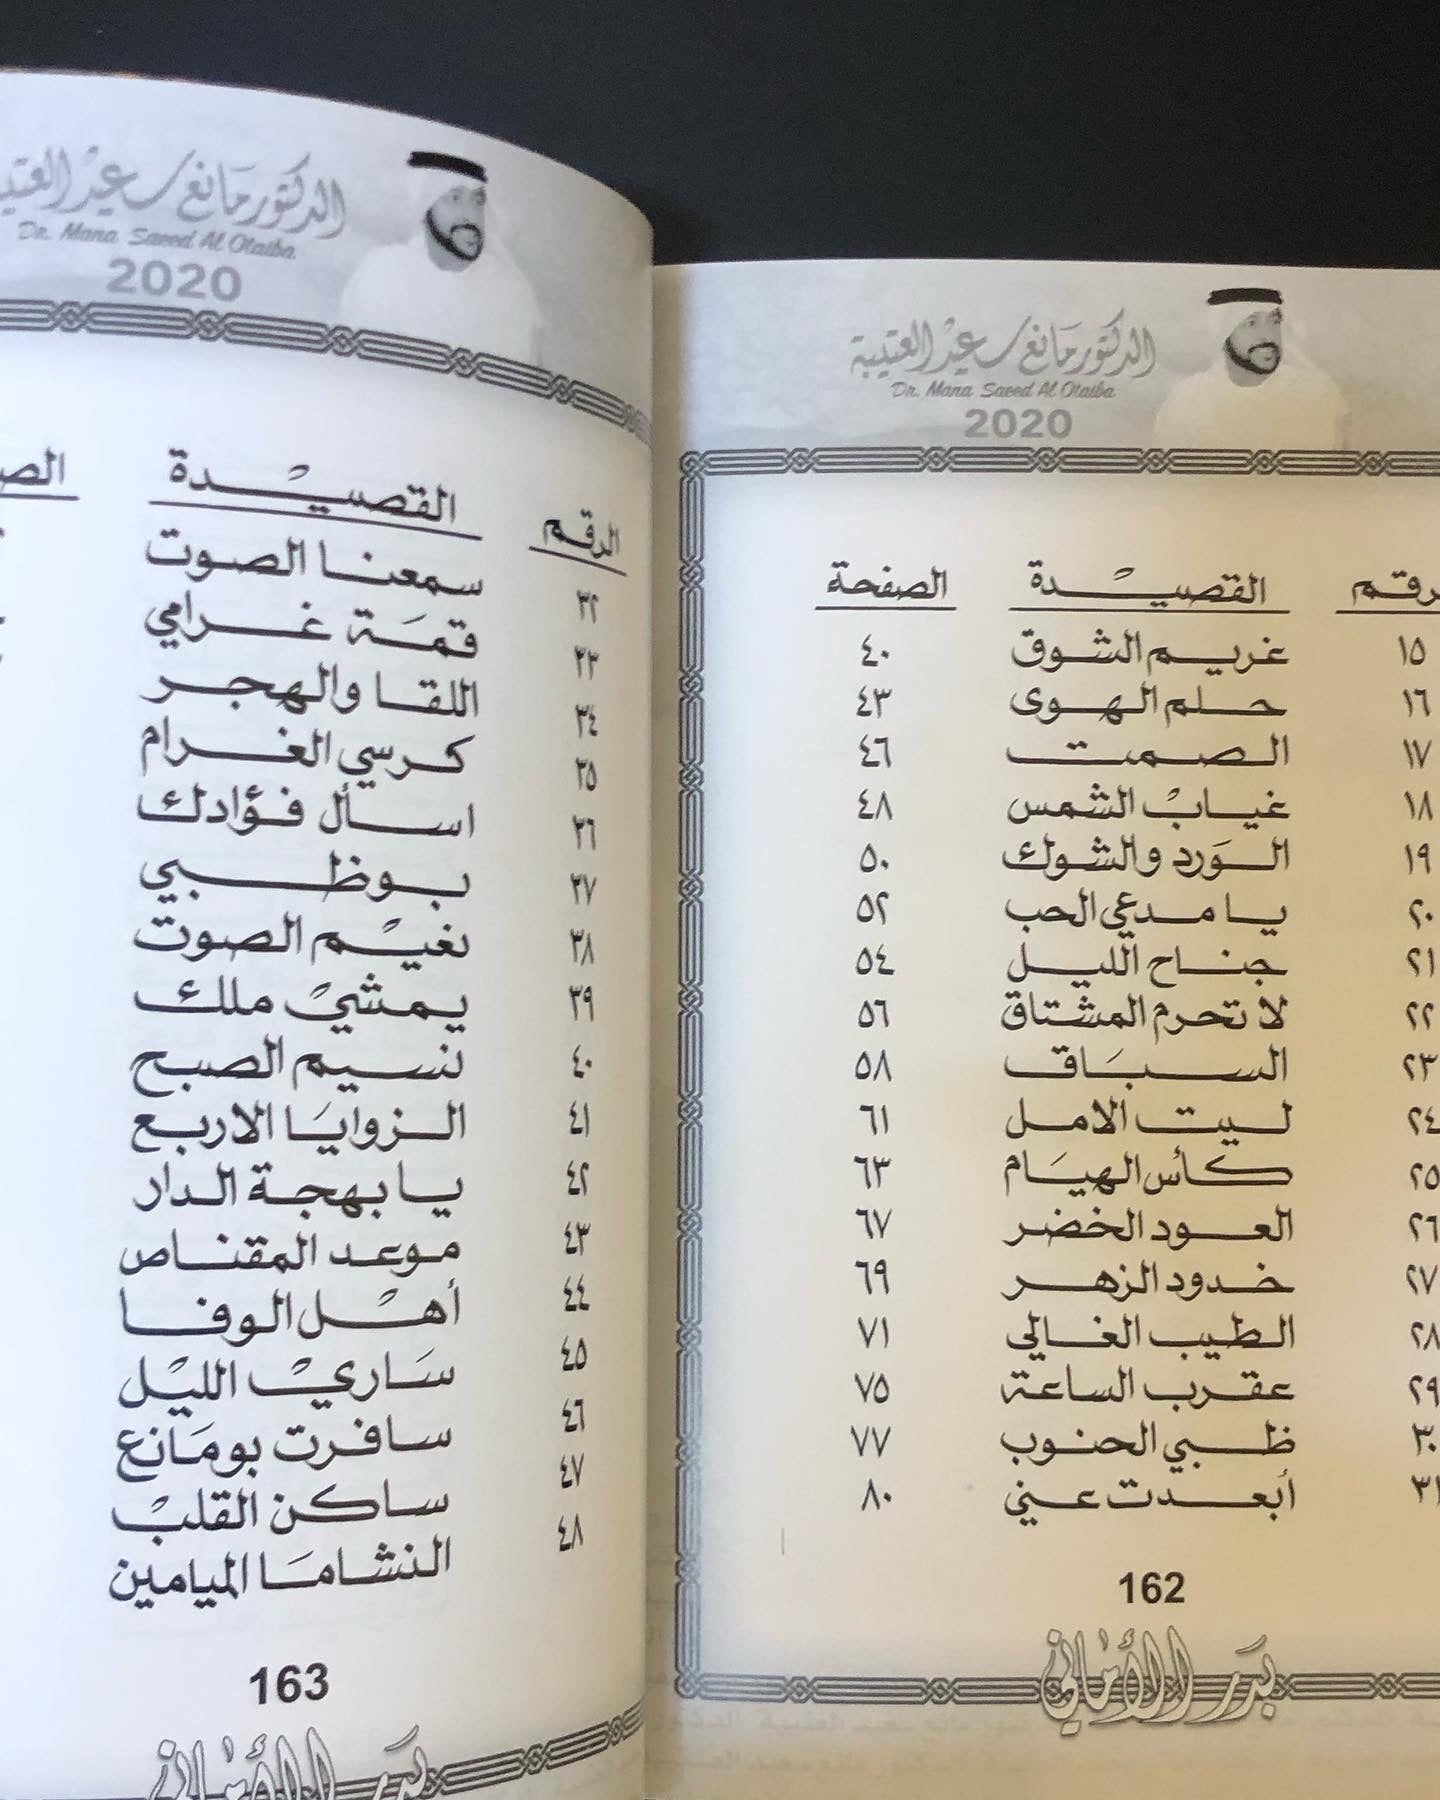 الدكتور مانع سعيد العتيبة
Dr. Mana Saeed Al Otaiba
2020
القصيدة الصفحة
١٥ غريم الشوق ٤٠
١٦ حلم الهوى ٤٣
١٧ الصمت ٤٦
١٨ غياب الشمس ٤٨
١٩ الورد والشوك ٥٠
٢٠ يا مدعي الحب ٥٢
٢١ جناح الليل ٥٤
٢٢ لا تحرم المشتاق ٥٦
٢٣ السباق ٥٨
٢٤ ليت الامل ٦١
٢٥ كأس الهيام ٦٣
٢٦ العود الخضر ٦٧
٢٧ خدود الزهر ٦٩
٢٨ الطيب الغالي ٧١
٢٩ عقرب الساعة ٧٥
٣٠ ظبي الجنوب ٧٧
٣١ أبعدت عني ٨٠
162
بدر الأماني
الدكتور مانع سعيد
Dr. Mana Saeed Al Otaiba
2020
الرقم القصيدة
٣٢ سمعنا الصوت
٣٣ قمة غرامي
٣٤ اللقا والهجر
٣٥ كرسي الغرام
٣٦ اسأل فؤادك
٣٧ بوظبي
٣٨ نغيم الصوت
٣٩ يمشي ملك
٤٠ نسيم الصبح
٤١ الزوايا الاربع
٤٢ يا بهجة الدار
٤٣ موعد المقناص
٤٤ أهل الوفا
٤٥ ساري الليل
٤٦ سافرت بومانع
٤٧ ساكن القلب
٤٨ النشاما الميامين
163
بدر الأماني